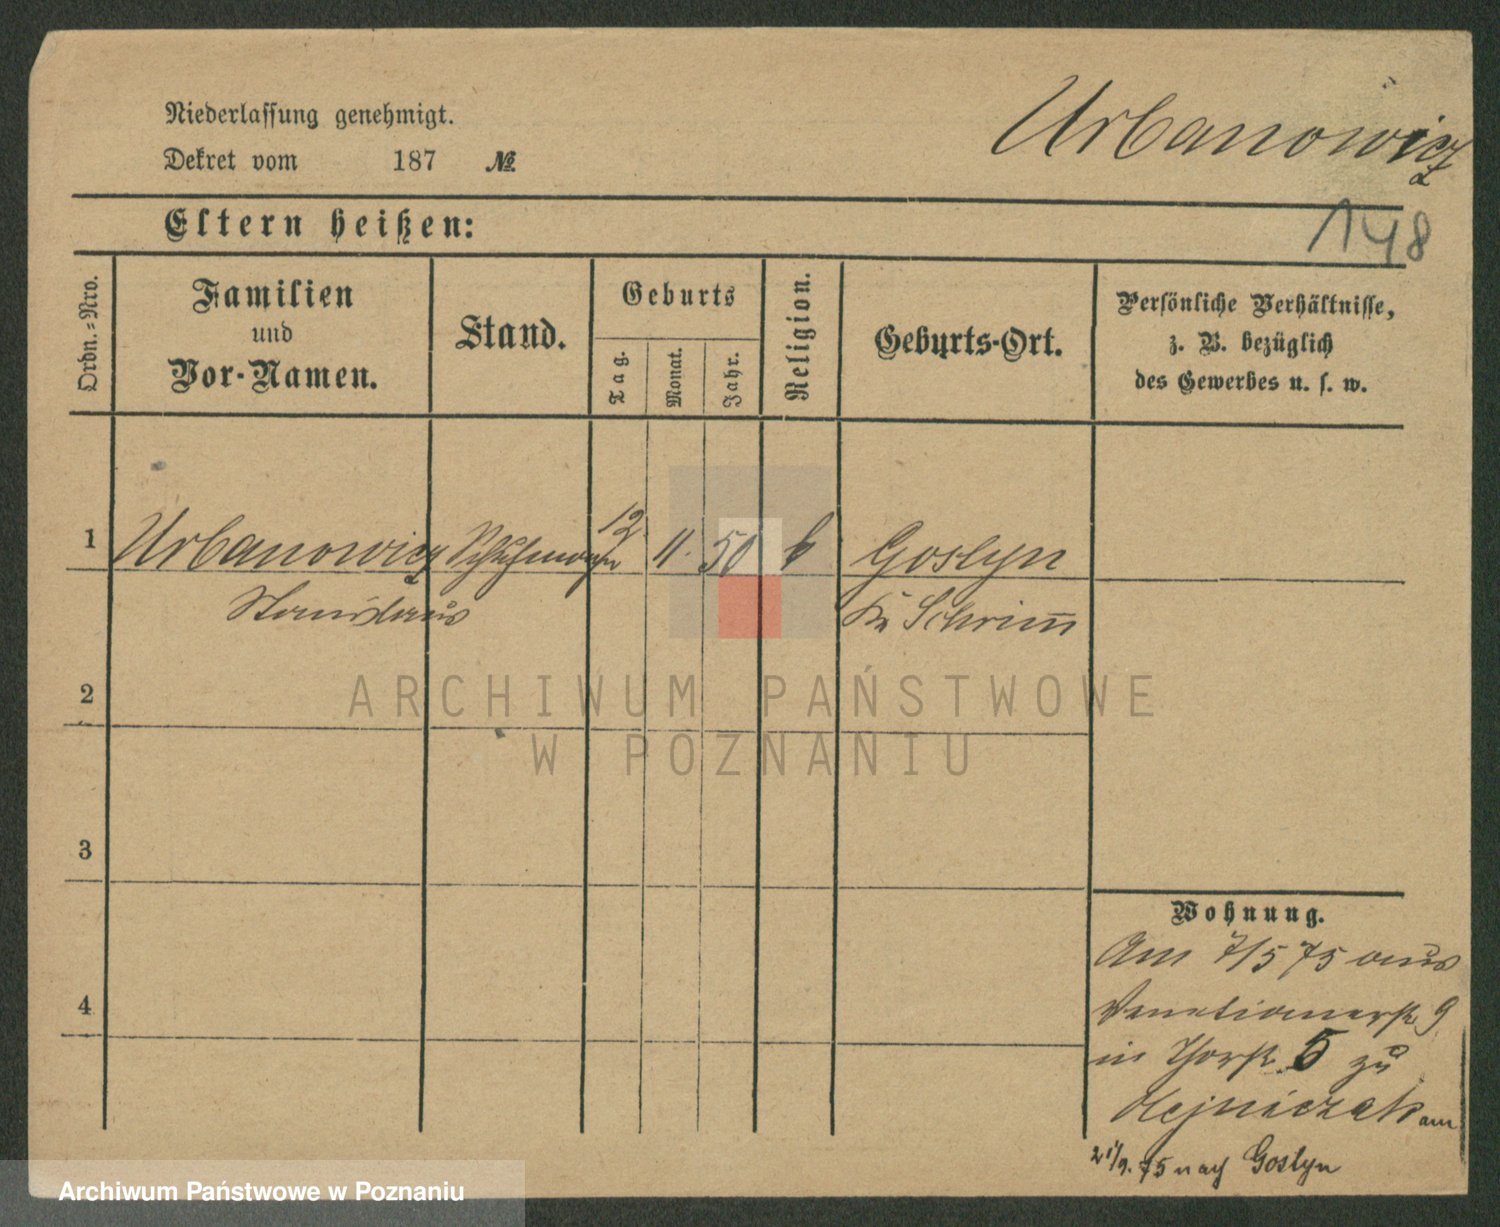 Niederlassung genehmigt.
Dekret vom 187 №
Urbanowicz
148
Eltern heißen:
Ordn.=Nro.
Familien
und
Vor-Namen.
Stand.
Geburts
Tag.
Monat.
Jahr.
Religion.
Geburts-Ort.
Persönliche Verhältnisse,
z. B. bezüglich
des Gewerbes u. s. w.
1 Urbanowicz 12 11. 50 k Goslyn
Stanislaus Kr Schrimm
2
3
4
ARCHIWUM PAŃSTWOWE
W POZNANIU
Wohnung.
Am 7/5 75 aus
Venetianerstr 9
in 5 zu
am
21/9. 75 nach Goslyn
Archiwum Państwowe w Poznaniu